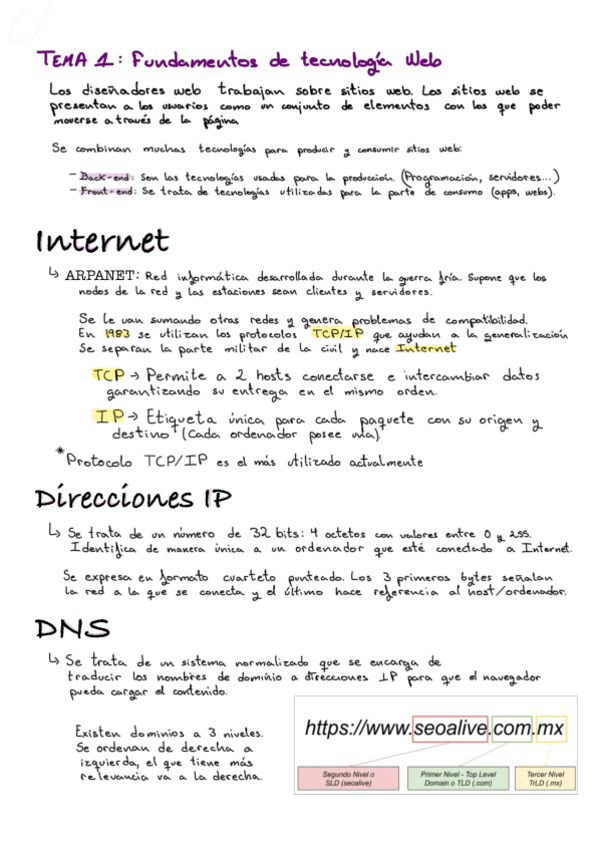 TEMA 1: Fundamentos de tecnología Web
Los diseñadores web trabajan sobre sitios web. Los sitios web se
presentan a los usuarios como un conjunto de elementos con los que poder
moverse a través de la página
Se combinan muchas tecnologías para producir y consumir sitios web:
- Back-end: Son las tecnologías usadas para la producción. (Programación, servidores...)
- Front-end: Se trata de tecnologías utilizadas para la parte de consumo (apps, webs).
Internet
↳ ARPANET: Red informática desarrollada durante la guerra fría. Supone que los
nodos de la red y las estaciones sean clientes y servidores.
Se le van sumando otras redes y genera problemas de compatibilidad.
En 1983 se utilizan los protocolos TCP/IP que ayudan a la generalización
Se separan la parte militar de la civil y nace Internet
TCP → Permite a 2 hosts conectarse e intercambiar datos
garantizando su entrega en el mismo orden.
IP → Etiqueta única para cada paquete con su origen y
destino (Cada ordenador posee una)
*Protocolo TCP/IP es el más utilizado actualmente
Direcciones IP
↳ Se trata de un número de 32 bits: 4 octetos con valores entre 0 y 255.
Identifica de manera única a un ordenador que esté conectado a Internet.
Se expresa en formato cuarteto punteado. Los 3 primeros bytes señalan
la red a la que se conecta y el último hace referencia al host/ordenador.
DNS
↳ Se trata de un sistema normalizado que se encarga de
traducir los nombres de dominio a direcciones IP para que el navegador
pueda cargar el contenido.
Existen dominios a 3 niveles.
Se ordenan de derecha a
izquierda, el que tiene más
relevancia va a la derecha.
https://www.seoalive.com.mx
Segundo Nivel o
SLD (seoalive)
Primer Nivel - Top Level
Domain o TLD (.com)
Tercer Nivel
TrLD (.mx)